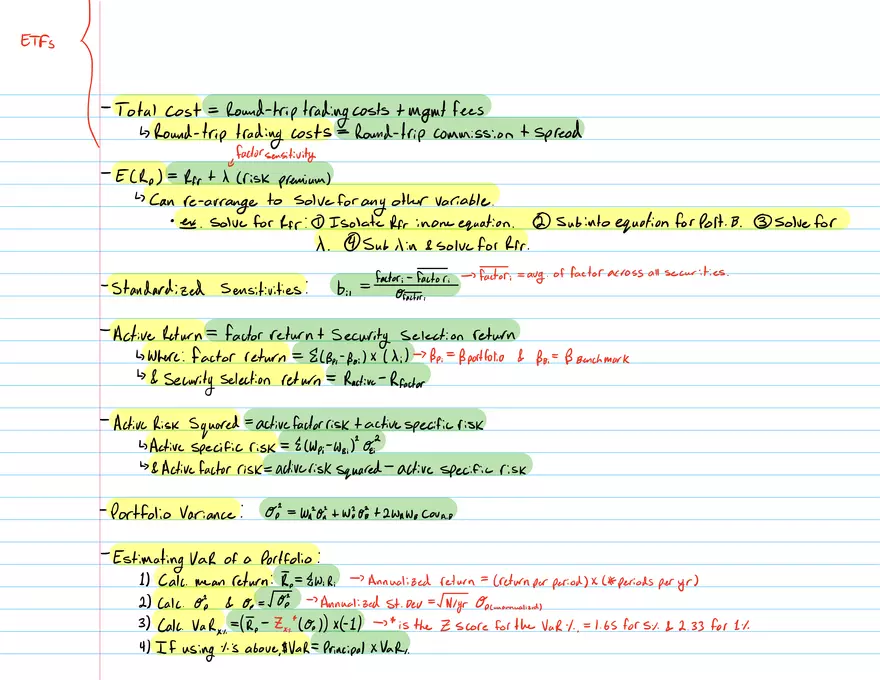 ETFs
- Total Cost = Round-trip trading costs + mgmt fees
↳ Round-trip trading costs = Round-trip commission + Spread
factor sensitivity
- E(Rp) = RFr + λ (risk premium)
↳ Can re-arrange to solve for any other variable.
• ex. Solve for RFr: ① Isolate RFr in one equation. ② Sub into equation for Port. B. ③ Solve for
λ. ④ Sub λ in & solve for RFr.
- Standardized Sensitivities: bi1 = (factor1 − \overline{factor1}) / σfactor1 → \overline{factor1} = avg. of factor across all securities.
- Active Return = factor return + Security Selection return
↳ Where: factor return = Σ(βpi - βBi) × (λi) → βpi = β portfolio & βBi = β Benchmark
↳ & Security Selection return = Ractive - Rfactor
- Active Risk Squared = active factor risk + active specific risk
↳ Active specific risk = Σ(Wpi - WBi)² σεi²
↳ & Active factor risk = active risk squared - active specific risk
- Portfolio Variance: σp² = WA²σA² + WB²σB² + 2WAWB CovA,B
- Estimating VaR of a Portfolio:
1) Calc. mean return: R̄p = ΣWiRi → Annualized return = (return per period) × (# periods per yr)
2) Calc. σp² & σp = √σp² → Annualized St. Dev = √N/yr σp(unannualized)
3) Calc VaRx% = (R̄p - Zx%*(σp)) × (-1) → * is the Z score for the VaR %, = 1.65 for 5% & 2.33 for 1%
4) If using %'s above, $VaR = Principal × VaR%